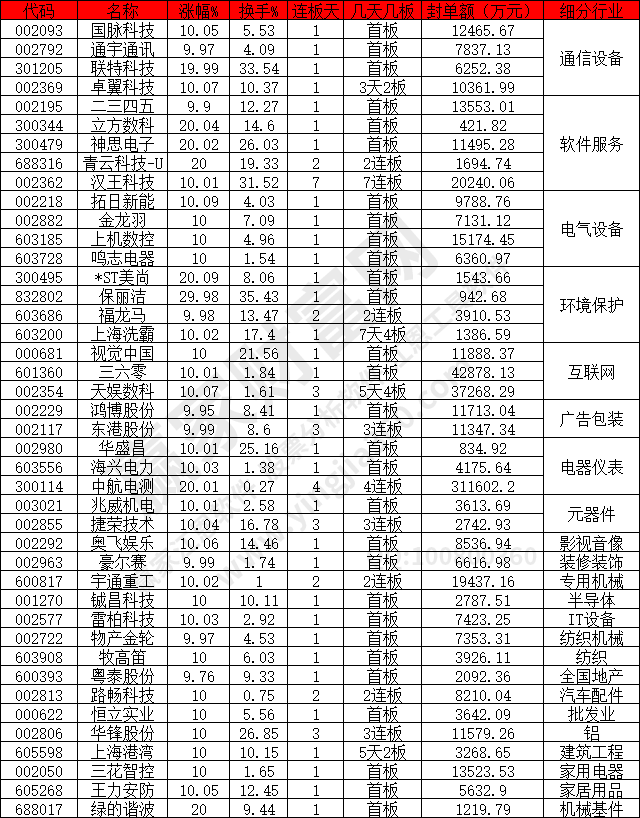 代码 名称 涨幅% 换手% 连板天 几天几板 封单额（万元） 细分行业
002093 国脉科技 10.05 5.53 1 首板 12465.67
002792 通宇通讯 9.97 4.09 1 首板 7837.13 通信设备
301205 联特科技 19.99 33.54 1 首板 6252.38
002369 卓翼科技 10.07 10.37 1 3天2板 10361.99
002195 二三四五 9.9 12.27 1 首板 13553.01
300344 立方数科 20.04 14.6 1 首板 421.82
300479 神思电子 20.02 26.03 1 首板 11495.28 软件服务
688316 青云科技-U 20 19.33 2 2连板 1694.74
002362 汉王科技 10.01 31.52 7 7连板 20240.06
002218 拓日新能 10.09 4.03 1 首板 9788.76
002882 金龙羽 10 7.09 1 首板 7131.12 电气设备
603185 上机数控 10 4.96 1 首板 15174.45
603728 鸣志电器 10 1.54 1 首板 6360.97
300495 *ST美尚 20.09 8.06 1 首板 1543.66
832802 保丽洁 29.98 35.43 1 首板 942.68 环境保护
603686 福龙马 9.98 13.47 2 2连板 3910.53
603200 上海洗霸 10.02 17.4 1 7天4板 1386.59
000681 视觉中国 10 21.56 1 首板 11888.37
601360 三六零 10.01 1.84 1 首板 42878.13 互联网
002354 天娱数科 10.07 1.61 3 5天4板 37268.29
002229 鸿博股份 9.95 8.41 1 首板 11713.04 广告包装
002117 东港股份 9.99 8.6 3 3连板 11347.34
002980 华盛昌 10.01 25.16 1 首板 834.92
603556 海兴电力 10.03 1.38 1 首板 4175.64 电器仪表
300114 中航电测 20.01 0.27 4 4连板 311602.2
003021 兆威机电 10.01 2.58 1 首板 3613.69 元器件
002855 捷荣技术 10.04 16.78 3 3连板 2742.93
002292 奥飞娱乐 10.06 14.46 1 首板 8536.94 影视音像
002963 豪尔赛 9.99 1.74 1 首板 6616.98 装修装饰
600817 宇通重工 10.02 1 2 2连板 19437.16 专用机械
001270 铖昌科技 10 10.11 1 首板 2787.51 半导体
002577 雷柏科技 10.03 2.92 1 首板 7423.25 IT设备
002722 物产金轮 9.97 4.53 1 首板 7353.31 纺织机械
603908 牧高笛 10 6.03 1 首板 3926.11 纺织
600393 粤泰股份 9.76 9.33 1 首板 2092.36 全国地产
002813 路畅科技 10 0.75 2 2连板 8210.04 汽车配件
000622 恒立实业 10 5.56 1 首板 3642.09 批发业
002806 华锋股份 10 26.85 3 3连板 11579.26 铝
605598 上海港湾 10 10.15 1 5天2板 3268.65 建筑工程
002050 三花智控 10 1.65 1 首板 13523.53 家用电器
605268 王力安防 10.05 12.45 1 首板 5632.9 家居用品
688017 绿的谐波 20 9.44 1 首板 1219.79 机械基件